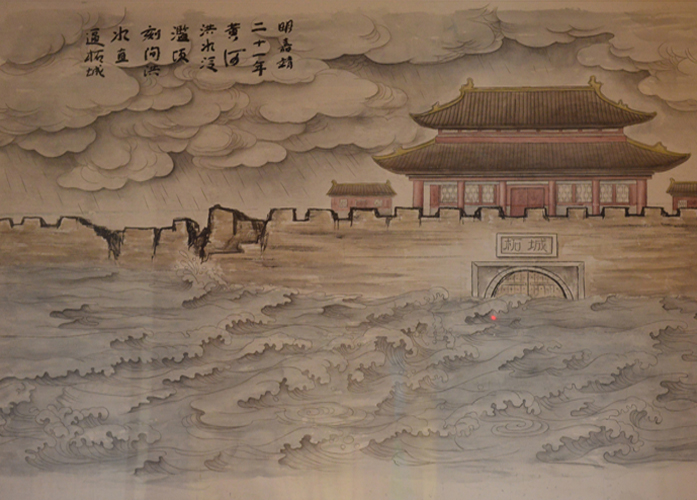 明嘉靖
二十一年
黄河
洪水泛
濫顷
刻间洪
水直
逼柘城
柘城